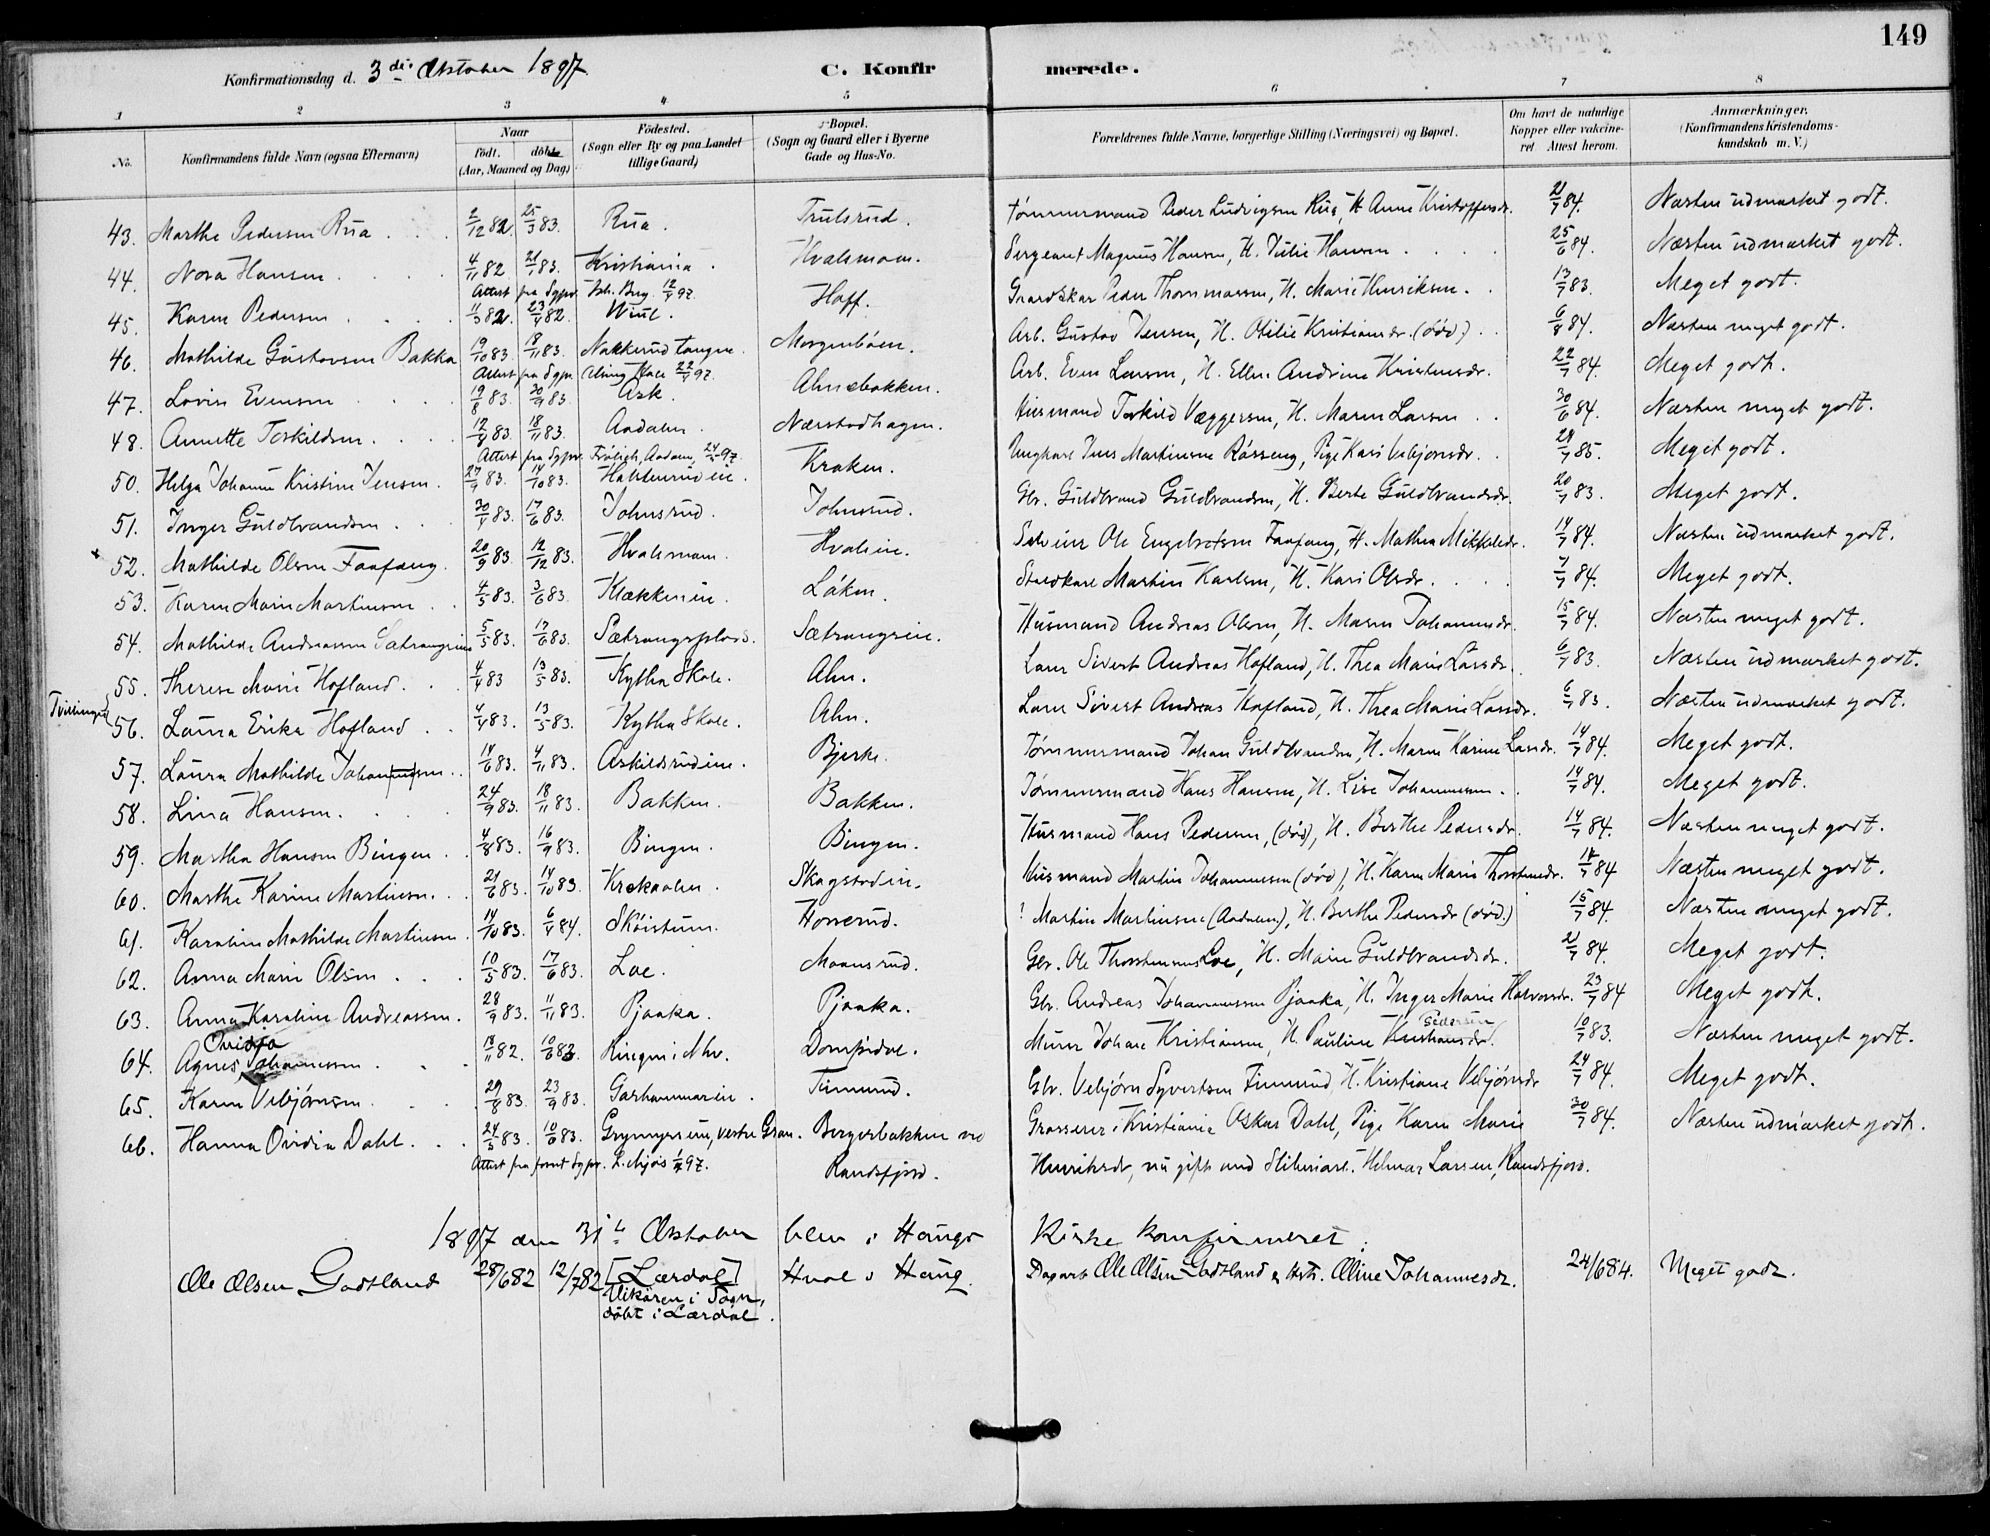 149
Konfirmationsdag d. 3die Oktober 1897. C. Konfirmerede.
1 2 3 4 5 6 7 8
No. Konfirmandens fulde Navn (ogsaa Efternavn) Naar födt. döbt. (Aar, Maaned og Dag) Födested. (Sogn eller By og paa Landet tillige Gaard) Bopæl. (Sogn og Gaard eller i Byerne Gade og Hus-No. Forældrenes fulde Navne, borgerlige Stilling (Næringsvei) og Bopæl. Om havt de naturlige Kopper eller vakcineret Attest herom. Anmærkninger. (Konfirmandens Kristendomskundskab m. V.)
43. Marthe Pedersen Rua 2/12 82. 25/3 83. Rua. Trulsrud. Tömmermand Peder Ludvigsen Rua, H. Anne Kristoffersdr. 21/7 84. Næsten udmærket godt.
44. Nora Hansen 4/11 82 21/1 83. Kristiania. Hvalsmoen. Sergeant Magnus Hansen, H. Julie Hansen 25/6 84. Næsten udmærket godt.
Attest fra Sgpr. 12/4 97.
45. Karen Pedersen 11/3 82. 23/4 82. Wiul. Hoff. Gaardskar Peder Thommassen, H. Marie Henriksen. 13/7 83. Meget godt.
46. Mathilde Gustavsen Bakka 19/10 83. 18/11 83. Nakkerud tangen. Morgenböen. Arb. Gustav Jensen, H. Otilie Kristiansdr. (död) 6/8 84. Næsten meget godt.
Attest fra Sgpr. 22/4 97.
47. Lovise Evensen 19/8 83. 30/9 83. Ask. Almebakken. Arb. Even Larsen, H. Ellen Andrine Kristensdr. 22/7 84. Meget godt.
48. Annette Torkildsen. 12/4 83. 18/11 83. Aadalen. Nærstadhagen. Husmand Torkild Væggersen, H. Maren Larsen 30/6 84. Næsten meget godt.
Attest fra Sgpr. Frölich, Aadalen, 24/3 97.
50. Helga Johanne Kristine Jensen. 27/7 83. 14/10 83. Halstenrudeie. Kroken. Ungkarl Jens Martinsen Rösseng, Pige Kari Vebjörnsdr. 29/7 85. Meget godt.
51. Inger Guldbrandsen 30/4 83. 17/6 83. Johnsrud. Johnsrud. Gbr. Guldbrand Guldbrandsen, H. Berte Guldbrandsdr. 20/7 83. Meget godt.
52. Mathilde Olsen Faafæng. 20/9 83. 12/12 83. Hvalsmoen. Hvaleie. Selveier Ole Engebretsen Faafæng, H. Mathea Mikkelsdr. 14/7 84. Næsten udmærket godt.
53. Karen Marie Martinsen 4/5 83. 3/6 83. Klækkeneie. Löken. Staldkarl Martin Karlsen, H. Kari Olsdr. 7/7 84. Meget godt.
54. Mathilde Andreassen Sætrangeie 5/5 83. 17/6 83. Sætrangsplads. Sætrangseie. Husmand Andreas Olsen, H. Maren Johannesdr. 15/7 84. Næsten meget godt.
55. Therese Marie Hofland. 4/4 83 13/5 83. Kythea Skole. Alm. Lærer Sivert Andreas Hofland, H. Thea Marie Larsdr. 6/7 83. Næsten udmærket godt.
Tvillinger
56. Laura Erika Hofland 4/4 83. 13/5 83. Kythea Skole. Alm. Lærer Sivert Andreas Hofland, H. Thea Marie Larsdr. 6/7 83. Næsten udmærket godt.
57. Laura Mathilde Johannesen 14/6 83. 4/11 83. Askildsrudeie. Bjerke. Tömmermand Johan Guldbrandsen, H. Maren Karine Larsdr. 14/7 84. Meget godt.
58. Lina Hansen. 24/9 83. 18/11 83. Bakken. Bakken. Tömmermand Hans Hansen, H. Lise Johannessen. 14/7 84. Meget godt.
59. Martha Hansen Bingen 4/8 83. 16/9 83. Bingen. Bingen. Husmand Hans Pedersen, (död), H. Berthe Pedersdr. 14/7 84. Næsten meget godt.
60. Marthe Karine Martinsen. 21/6 83. 14/10 83. Krokaalen. Skagstadeie. Husmand Martin Johannessen (död), H. Karen Marie Thorstensdr. 14/7 84 Næsten meget godt.
61. Karoline Mathilde Martinsen. 14/10 83. 6/4 84. Sköistuen. Honerud. ! Martin Martinsen (Aadalen), H. Berthe Pedersdr (död.) 15/7 84. Næsten meget godt.
62. Anna Marie Olsen 10/5 83. 17/6 83. Loe. Moensrud. Gbr. Ole Thorstensen Loe, H. Marie Guldbrandsdr. 21/7 84. Meget godt.
63. Anna Karoline Andreassen. 28/9 83. 11/11 83. Pjaaka. Pjaaka. Gbr. Andreas Johannessen Pjaaka, H. Inger Marie Halvorsdr. 23/7 84 Meget godt.
64. Agnes Ovidia Johannessen 18/11 82. 10/6 83. Ringen i Nhv. Murer Johan Kristiansen, H. Pauline Kristiansdr. Pedersen 10/7 83. Næsten meget godt.
65. Karen Vebjörnsen 29/8 83. 23/9 83. Garhammereie. Finnerud. Gbr. Vebjörn Syvertsen Finnerud H. Kristiane Vebjörnsdr 24/7 84. Meget godt.
66. Hanna Ovidia Dahl. 24/3 83. 10/6 83. Grymyrseie, vestre Gran. Bergerbakken ved Randsfjord. Grosserer i Kristiania Oskar Dahl, Pige Karen Marie 30/7 84. Næsten udmærket godt.
Attest fra Sgpr. 97. Henriksdr, nu gift med Hilmar Larsen, Randsfjord.
1897 den 31te Oktober blev i Haugs Kirke konfirmeret:
Ole Olsen Godtland 28/6 82 12/7 82 [Lærdal] i Sogn, döbt i Lærdal. Hval i Haug. Dagarb. Ole Olsen Godtland & Hstr. Oline Johannesdr. 24/6 84. Meget godt.